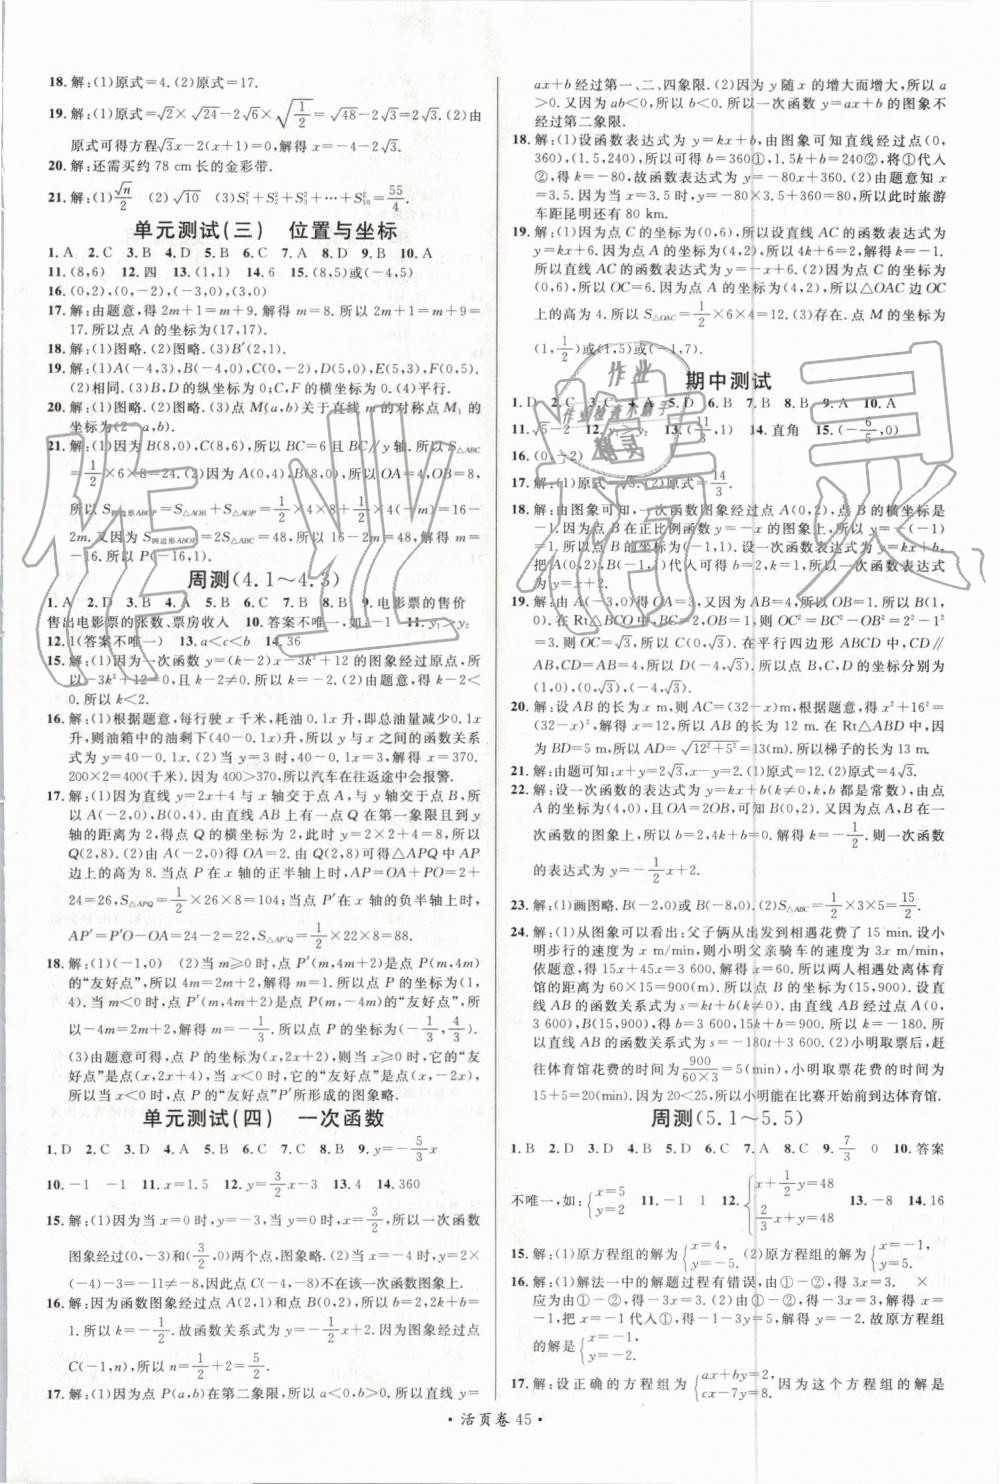 18. 解:(1)原式=4. (2)原式=17.
19. 解:(1)原式=√2×√24-2√6×√(1/2)=√48-2√3=2√3. (2)由
原式可得方程√3x-2√3(x+1)=0,解得
20. 解:还需买约 78 cm 长的金彩带.
21. 解:(1)√n/2 (2)√10 (3)S₁²+S₂²+S₃²+…+S₁₀²=55/4.
单元测试(三) 位置与坐标
1. A 2. C 3. B 4. D 5. B 6. C 7. A 8. D 9. B 10. A
11. (8,6) 12. 四 13. (1,1) 14. 6 15. (8,5)或(-4,5)
16. (0,2),(0,-2),(-3,0),(3,0)
17. 解:由题意,得 2m+1=m+9. 解得 m=8. 所以 2m+1=m+9=
17. 所以点 A 的坐标为(17,17).
18. 解:(1)图略. (2)图略. (3)B′(2,1).
19. 解:(1)A(-4,3),B(-4,0),C(0,-2),D(5,0),E(5,3),F(0,5).
(2)图略. (3)B,D 的纵坐标为 0,C,F 的横坐标为 0. (4)平行.
20. 解:(1)图略. (2)图略. (3)点 M(a,b)关于直线 m 的对称点 M₁ 的
坐标为(2-a,b).
21. 解:(1)因为 B(8,0),C(8,6),所以 BC=6 且 BC∥y 轴. 所以 S△ABC=
1/2×6×8=24. (2)因为 A(0,4),B(8,0),所以 OA=4,OB=8,
所以 S四边形ABOP=S△AOB+S△AOP=1/2×4×8+1/2×4(-m)=16-
2m. 又因为 S四边形ABOP=2S△ABC=48,所以 16-2m=48,解得 m=
-16. 所以 P(-16,1).
周测(4.1～4.3)
1. A 2. D 3. D 4. A 5. B 6. C 7. B 8. D 9. 电影票的售价
售出电影票的张数、票房收入 10. 答案不唯一,如:-1 11. y₁>y₂
12. 1(答案不唯一) 13. a<c<b 14. 36
15. 解:(1)因为一次函数 y=(k-2)x-3k²+12 的图象经过原点,所
以-3k²+12=0,且 k-2≠0. 所以 k=-2. (2)由题意,得 k-2<
0. 所以 k<2.
16. 解:(1)根据题意,每行驶 x 千米,耗油 0.1x 升,即总油量减少0.1x
升,则油箱中的油剩下(40-0.1x)升. 所以 y 与 x 之间的函数关系
式为 y=40-0.1x. (2)当 y=3 时,40-0.1x=3. 解得 x=370.
200×2=400(千米). 因为 400>370,所以汽车在往返途中会报警.
17. 解:(1)因为直线 y=2x+4 与 x 轴交于点 A,与 y 轴交于点 B,所
以 A(-2,0),B(0,4). 由直线 AB 上有一点 Q 在第一象限且到 y
轴的距离为 2,得点 Q 的横坐标为 2,此时 y=2×2+4=8,所以
Q(2,8). (2)由 A(-2,0)得 OA=2. 由 Q(2,8)可得△APQ 中 AP
边上的高为 8. 当点 P 在 x 轴的正半轴上时,AP=OA+PO=2+
24=26,S△APQ=1/2×26×8=104;当点 P′在 x 轴的负半轴上时,
AP′=P′O-OA=24-2=22,S△AP′Q=1/2×22×8=88.
18. 解:(1)(-1,0) (2)当 m≥0 时,点 P′(m,4m+2)是点 P(m,4m)
的“友好点”,所以 4m=4m+2,解得 m=1. 所以点 P 的坐标为(1,4).
当 m<0 时,点 P′(m,4m+2)是点 P(m,-4m)的“友好点”,所
以-4m=4m+2,解得 m=-1/3. 所以点 P 的坐标为(-1/3,4/3).
(3)由题意可得,点 P 的坐标为(x,2x+2),则当 x≥0 时,它的“友
好点”是点(x,2x+4),所以当 x<0 时,它的“友好点”是点(x,
-2x-2). 所以点 P 的“友好点”P′所形成的图象略.
单元测试(四) 一次函数
1. D 2. C 3. D 4. A 5. D 6. C 7. B 8. B 9. y=-5/3x
10. -1 -1 11. x=1.5 12. y=-3/2x+3 13. 4 14. 360
15. 解:(1)因为当 x=0 时,y=-3,当 y=0 时,x=3/2,所以一次函数
图象经过(0,-3)和(3/2,0)两个点,图象略. (2)因为当 y=2×
(-4)-3=-11≠-8,因此点 C(-4,-8)不在该一次函数图象上.
16. 解:因为函数图象经过点 A(2,1)和点 B(0,2),所以 b=2,2k+b
=1,所以 k=-1/2. 故函数关系式为 y=-1/2x+2. 因为图象经过点
C(-1,n),所以 n=1/2+2=5/2.
17. 解:(1)因为点 P(a,b)在第二象限,所以 a<0,b>0. 所以直线 y=
ax+b 经过第一、二、四象限. (2)因为 y 随 x 的增大而增大,所以 a
>0. 又因为 ab<0,所以 b<0. 所以一次函数 y=ax+b 的图象不
经过第二象限.
18. 解:(1)设函数表达式为 y=kx+b,由图象可知直线经过点(0,
360),(1.5,240),所以可得 b=360①,1.5k+b=240②,将①代入
②,得 k=-80,故函数表达式为 y=-80x+360. (2)由题意知 x
=3.5,因为当 x=3.5 时,y=-80×3.5+360=80,所以此时旅游
车距昆明还有 80 km.
19. 解:(1)因为点 C 的坐标为(0,6),所以设直线 AC 的表达式为 y=
kx+6. 因为直线 AC 经过点 A(4,2),所以 4k+6=2. 解得 k=-1.
所以直线 AC 的函数表达式为 y=-x+6. (2)因为点 C 的坐标为
(0,6),所以 OC=6. 因为点 A 的坐标为(4,2),所以△OAC 边 OC
上的高为 4. 所以 S△OAC=1/2×6×4=12. (3)存在. 点 M 的坐标为
(1,1/2)或(1,5)或(-1,7).
期中测试
1. D 2. C 3. C 4. A 5. D 6. B 7. D 8. B 9. A 10. A
11. √5-2 12. y₁>y₂ 13. (11/3,1) 14. 直角 15. (-6/5,0)
16. (0,-2)
17. 解:(1)原式=√3. (2)原式=14/3.
18. 解:由图象可知,一次函数图象经过点 A(0,2),点 B 的横坐标是
-1. 因为点 B 在正比例函数 y=-x 的图象上,所以 y=-(-1)
=1. 所以点 B 的坐标为(-1,1). 设一次函数表达式为 y=kx+
b,把点 A(0,2),B(-1,1)代入可得 b=2,k=1,所以一次函数表达
式为 y=x+2.
19. 解:因为 A(-3,0)得 OA=3. 又因为 AB=4,所以 OB=1,所以 B(1,
0). 在 Rt△OBC 中,BC=2,OB=1,则 OC²=BC²-OB²=2²-1²=
3. 所以 OC=√3. 所以 C(0,√3). 在平行四边形 ABCD 中,CD∥
AB,CD=AB=4. 所以 D(-4,√3). 所以点 B,C,D 的坐标分别为
(1,0),(0,√3),(-4,√3).
20. 解:设 AB 的长为 x m,则 AC=(32-x)m. 根据题意,得 x²+16²=
(32-x)²,解得 x=12,所以 AB 的长为 12 m. 在 Rt△ABD 中,
因为 BD=5 m,所以 AD=√(12²+5²)=13(m). 所以梯子的长为 13 m.
21. 解:由题可知:x+y=2√3. (1)原式=12. (2)原式=4√3.
22. 解:设一次函数的表达式为 y=kx+b(k≠0,k,b 都是常数),由点
A 的坐标为(4,0),且 OA=2OB,可知 B(0,2). 又点 A,B 在一
次函数的图象上,所以 b=2,4k+b=0. 解得 k=-1/2. 则一次函数
的表达式为 y=-1/2x+2.
23. 解:(1)画图略. B(-2,0)或 B(8,0). (2)S△ABC=1/2×3×5=15/2.
24. 解:(1)从图象可以看出:父子俩从出发到相遇花费了 15 min. 设小
明步行的速度为 x m/min,则小明父亲骑车的速度为 3x m/min.
依题意,得 15x+45x=3 600. 解得 x=60. 所以两人相遇处离体育
馆的距离为 60×15=900(m). 所以点 B 的坐标为(15,900). 设直
线 AB 的函数关系式为 s=kt+b(k≠0). 由直线 AB 经过点 A(0,
3 600),B(15,900),得 b=3 600,15k+b=900. 所以 k=-180. 所
以直线 AB 的函数关系式为 s=-180t+3 600. (2)小明取票后,赶
往体育馆花费的时间为 900/(60×3)=5(min),小明取票花费的时间为
15+5=20(min). 因为 20<25,所以小明能在比赛开始前到达体育馆.
周测(5.1～5.5)
1. B 2. D 3. D 4. B 5. C 6. C 7. A 8. C 9. 7/3 0 10. 答案
不唯一,如:{x=5 y=2 11. -1 1 12. {x+1/2y=48 2/3x+y=48 13. -8 14. 16
15. 解:(1)原方程组的解为{x=4, y=-5. (2)原方程组的解为{x=2, y=1.
16. 解:(1)解法一中的解题过程有错误,由①-②,得 3x=3. ×
应为由①-②,得-3x=3. (2)由①-②,得-3x=3. 解得 x=
-1,把 x=-1 代入①,得-1-3y=5. 解得 y=-2. 故原方程组
的解是{x=-1, y=-2.
17. 解:设正确的方程组为{ax+by=2, cx-7y=8. 因为这个方程组的解是
·活页卷 45·
作业精灵